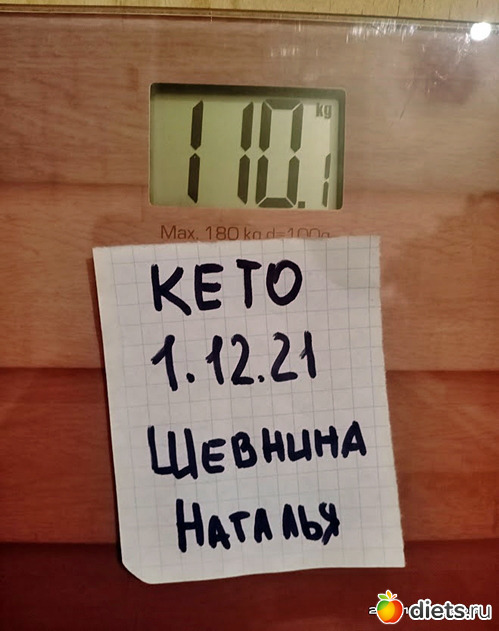 110.1 kg
Max. 180 kg d=100g
КЕТО
1.12.21
ШЕВНИНА
НАТАЛЬЯ
diets.ru